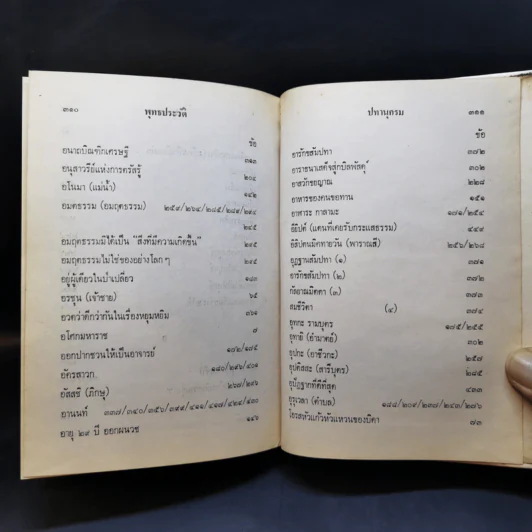 ๓๑๐ พุทธประวัติ
ข้อ
อนาถบิณฑิกเศรษฐี ๓๑๓
อนุสาวรีย์แห่งการตรัสรู้ ๒๐๔
อโนมา (แม่น้ำ) ๑๔๒
อมตธรรม (อมฤตธรรม) ๒๕๙/๒๖๔/๒๘๕/๒๘๙/๒๙๔
อมฤตธรรมมิได้เป็น "สิ่งที่มีความเกิดขึ้น" ๒๙๕
อมฤตธรรมไม่ใช่ของอย่างโลก ๆ ๒๙๕
อยู่ผู้เดียวในป่าเปลี่ยว ๑๘๓
อรชุน (เจ้าชาย) ๖๕
อวดว่าดีกว่ากันในเรื่องหยุมหยิม ๓๖๑
อโศกมหาราช ๗
ออกปากชวนให้เป็นอาจารย์ ๑๗๒/๑๗๕
อัครสาวก ๑๘๐/๒๙๖/๔๐๑
อัสสชิ (ภิกษุ) ๒๖๗/๒๙๖
อานนท์ ๓๓๗/๓๔๐/๓๕๖/๓๙๙/๔๑๑/๔๑๗/๔๒๔/๔๓๐
อายุ ๒๙ ปี ออกผนวช ๑๔๖
ปทานุกรม ๓๑๑
ข้อ
อารักขสัมปทา ๓๗๒
อาราธนาเสด็จสู่กบิลพัสดุ์ ๓๐๒
อาสวักขยญาณ ๒๒๘
อาหารของคนขอทาน ๑๕๑
อาฬาระ กาลามะ ๑๗๑/๒๕๔
อิยิปต์ (แดนที่เคยรับกระแสธรรม) ๔๔๙
อิสิปตนมิคทายวัน (พาราณสี) ๒๕๖/๒๖๘
อุฏฐานสัมปทา (๑) ๓๗๑
อารักขสัมปทา (๒) ๓๗๒
กัลยาณมิตตา (๓) ๓๗๓
สมชีวิตา (๔) ๓๗๔
อุททกะ รามบุตร ๑๗๕/๒๕๕
อุทายิ (อำมาตย์) ๓๐๒
อุปกะ (อาชีวกะ) ๒๕๗
อุปติสสะ (สารีบุตร) ๒๙๖
อุปัฏฐากที่ดีที่สุด ๔๓๓
อุรุเวลา (ตำบล) ๑๘๔/๒๐๙/๒๓๗/๒๔๓/๒๗๖
โอรสหัวแก้วหัวแหวนของบิดา ๗๓